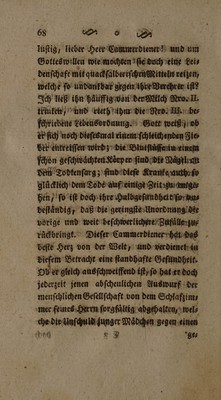 68
lustig, lieber Herr Cammerdiener! und um
Gotteswillen wie möchten sie doch eine Lei-
denschaft mit quacksalberischen Mitteln reizen,
welche so undankbar gegen ihre Verehrer ist?
Ich ließ ihn häuffig von der Milch Nro. II.
trinken, und rieth ihm die Nro. III. be-
schriebene Lebensordnung. Gott weiß, ob
er sich noch diesesmal einem schleichenden Fie-
ber entreissen wird; die
schön geschwächten Körper sind die Nägel zu
dem Todensarg; sind diese Kranke auch so
glücklich dem Tode auf einige Zeit zu entge-
hen, so ist doch ihre Halbgesundheit so un-
beständig, daß die geringste Unordnung die
vorige und weit beschwerlichere Zufälle zu-
rückbringt. Dieser Cammerdiener hat das
beste Herz von der Welt, und verdienet in
diesem Betracht eine standhafte Gesundheit.
Ob er gleich ausschweiffend ist, so hat er doch
jederzeit jenen abscheulichen Auswurf der
menschlichen Gesellschaft von dem Schlafzim-
mer seines Herrn sorgfältig abgehalten, wel-
che die Unschuld junger Mädchen gegen einen
ge-